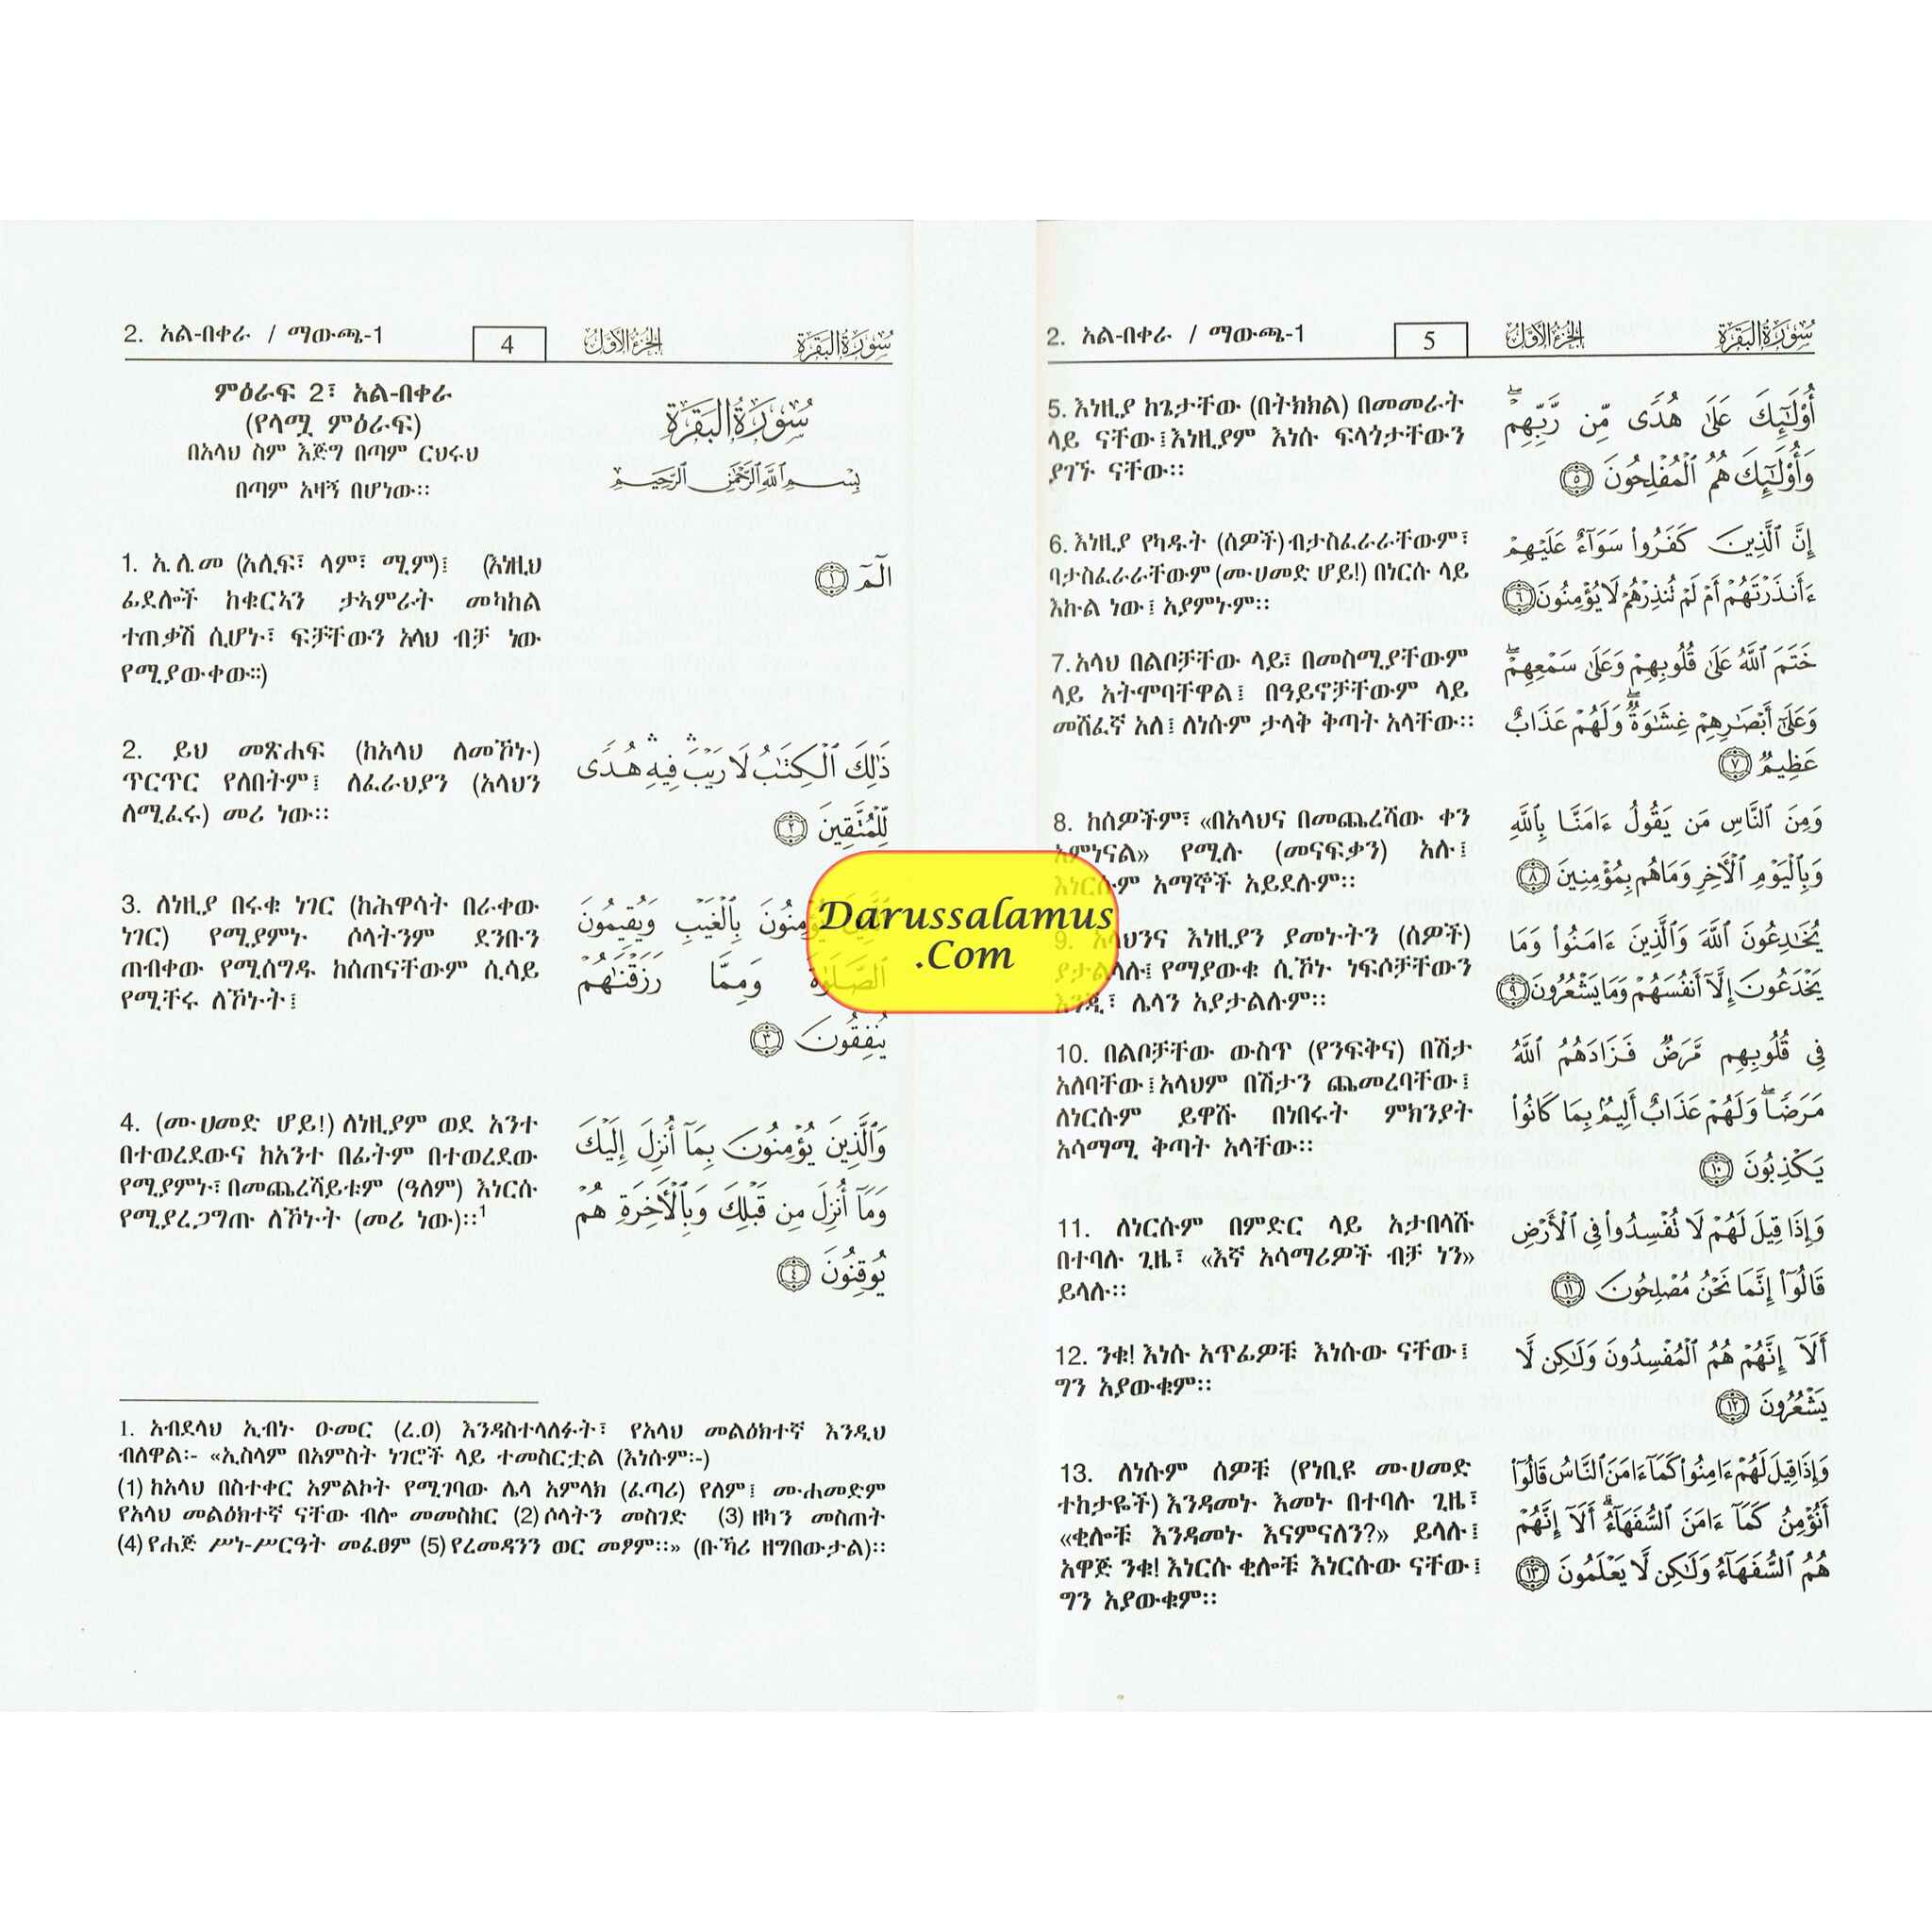 2. አል-በቀራ / ማውጫ-1
4
الجزء الأول
سورة البقرة
ምዕራፍ 2፣ አል-በቀራ
(የላሟ ምዕራፍ)
በአላህ ስም እጅግ በጣም ርህሩህ
በጣም አዛኝ በሆነው፡፡
سُورَةُ البَقَرَةِ
بِسْمِ ٱللَّهِ ٱلرَّحْمَٰنِ ٱلرَّحِيمِ
1. አ.ሊ.መ (አሊፍ፣ ላም፣ ሚም)፤ (እነዚህ
ፊደሎች ከቁርኣን ታኣምራት መካከል
ተጠቃሽ ሲሆኑ፣ ፍቻቸውን አላህ ብቻ ነው
የሚያውቀው፡፡)
الٓمٓ ١
2. ይህ መጽሐፍ (ከአላህ ለመኾኑ)
ጥርጥር የለበትም፤ ለፈራህያን (አላህን
ለሚፈሩ) መሪ ነው፡፡
ذَٰلِكَ ٱلْكِتَٰبُ لَا رَيْبَ ۛ فِيهِ ۛ هُدًى
لِّلْمُتَّقِينَ ٢
3. ለነዚያ በሩቁ ነገር (ከሕዋሳት በራቀው
ነገር) የሚያምኑ ሶላትንም ደንቡን
ጠብቀው የሚሰግዱ ከሰጠናቸውም ሲሳይ
የሚቸሩ ለኾኑት፤
ٱلَّذِينَ يُؤْمِنُونَ بِٱلْغَيْبِ وَيُقِيمُونَ
ٱلصَّلَوٰةَ وَمِمَّا رَزَقْنَٰهُمْ
يُنفِقُونَ ٣
4. (ሙሀመድ ሆይ!) ለነዚያም ወደ አንተ
በተወረደውና ከአንተ በፊትም በተወረደው
የሚያምኑ፣ በመጨረሻይቱም (ዓለም) እነርሱ
የሚያረጋግጡ ለኾኑት (መሪ ነው)፡፡1
وَٱلَّذِينَ يُؤْمِنُونَ بِمَآ أُنزِلَ إِلَيْكَ
وَمَآ أُنزِلَ مِن قَبْلِكَ وَبِٱلْءَاخِرَةِ هُمْ
يُوقِنُونَ ٤
1. አብደላህ ኢብኑ ዑመር (ረ.ዐ) እንዳስተላለፉት፣ የአላህ መልዕክተኛ እንዲህ
ብለዋል፡- «ኢስላም በአምስት ነገሮች ላይ ተመስርቷል (እነሱም፡-)
(1) ከአላህ በስተቀር አምልኮት የሚገባው ሌላ አምላክ (ፈጣሪ) የለም፤ ሙሐመድም
የአላህ መልዕክተኛ ናቸው ብሎ መመስከር (2) ሶላትን መስገድ (3) ዘካን መስጠት
(4) የሐጅ ሥነ-ሥርዓት መፈፀም (5) የረመዳንን ወር መፆም፡፡» (ቡኻሪ ዘግበውታል)፡፡
Darussalamus
.Com
2. አል-በቀራ / ማውጫ-1
5
الجزء الأول
سورة البقرة
5. እነዚያ ከጌታቸው (በትክክል) በመመራት
ላይ ናቸው፤ እነዚያም እነሱ ፍላጎታቸውን
ያገኙ ናቸው፡፡
أُو۟لَٰٓئِكَ عَلَىٰ هُدًى مِّن رَّبِّهِمْ ۖ
وَأُو۟لَٰٓئِكَ هُمُ ٱلْمُفْلِحُونَ ٥
6. እነዚያ የካዱት (ሰዎች) ብታስፈራራቸውም፣
ባታስፈራራቸውም (ሙሀመድ ሆይ!) በነርሱ ላይ
እኩል ነው፤ አያምኑም፡፡
إِنَّ ٱلَّذِينَ كَفَرُوا۟ سَوَآءٌ عَلَيْهِمْ
ءَأَنذَرْتَهُمْ أَمْ لَمْ تُنذِرْهُمْ لَا يُؤْمِنُونَ ٦
7. አላህ በልቦቻቸው ላይ፣ በመስሚያቸውም
ላይ አትሞባቸዋል፤ በዓይኖቻቸውም ላይ
መሸፈኛ አለ፤ ለነሱም ታላቅ ቅጣት አላቸው፡፡
خَتَمَ ٱللَّهُ عَلَىٰ قُلُوبِهِمْ وَعَلَىٰ سَمْعِهِمْ ۖ
وَعَلَىٰٓ أَبْصَٰرِهِمْ غِشَٰوَةٌ ۖ وَلَهُمْ عَذَابٌ
عَظِيمٌ ٧
8. ከሰዎችም፣ «በአላህና በመጨረሻው ቀን
አምነናል» የሚሉ (መናፍቃን) አሉ፤
እነርሱም አማኞች አይደሉም፡፡
وَمِنَ ٱلنَّاسِ مَن يَقُولُ ءَامَنَّا بِٱللَّهِ
وَبِٱلْيَوْمِ ٱلْءَاخِرِ وَمَا هُم بِمُؤْمِنِينَ ٨
9. አላህንና እነዚያን ያመኑትን (ሰዎች)
ያታልላሉ፤ የማያውቁ ሲኾኑ ነፍሶቻቸውን
እንጂ፣ ሌላን አያታልሉም፡፡
يُخَٰدِعُونَ ٱللَّهَ وَٱلَّذِينَ ءَامَنُوا۟ وَمَا
يَخْدَعُونَ إِلَّآ أَنفُسَهُمْ وَمَا يَشْعُرُونَ ٩
10. በልቦቻቸው ውስጥ (የንፍቅና) በሽታ
አለባቸው፤ አላህም በሽታን ጨመረባቸው፤
ለነርሱም ይዋሹ በነበሩት ምክንያት
አሳማሚ ቅጣት አላቸው፡፡
فِى قُلُوبِهِم مَّرَضٌ فَزَادَهُمُ ٱللَّهُ
مَرَضًا ۖ وَلَهُمْ عَذَابٌ أَلِيمٌۢ بِمَا كَانُوا۟
يَكْذِبُونَ ١٠
11. ለነርሱም በምድር ላይ አታበላሹ
በተባሉ ጊዜ፣ «እኛ አሳማሪዎች ብቻ ነን»
ይላሉ፡፡
وَإِذَا قِيلَ لَهُمْ لَا تُفْسِدُوا۟ فِى ٱلْأَرْضِ
قَالُوٓا۟ إِنَّمَا نَحْنُ مُصْلِحُونَ ١١
12. ንቁ! እነሱ አጥፊዎቹ እነሱው ናቸው፤
ግን አያውቁም፡፡
أَلَآ إِنَّهُمْ هُمُ ٱلْمُفْسِدُونَ وَلَٰكِن لَّا
يَشْعُرُونَ ١٢
13. ለነሱም ሰዎቹ (የነቢዩ ሙሀመድ
ተከታዬች) እንዳመኑ እመኑ በተባሉ ጊዜ፣
«ቂሎቹ እንዳመኑ እናምናለን?» ይላሉ፤
አዋጅ ንቁ! እነርሱ ቂሎቹ እነርሱው ናቸው፤
ግን አያውቁም፡፡
وَإِذَا قِيلَ لَهُمْ ءَامِنُوا۟ كَمَآ ءَامَنَ ٱلنَّاسُ قَالُوٓا۟
أَنُؤْمِنُ كَمَآ ءَامَنَ ٱلسُّفَهَآءُ ۗ أَلَآ إِنَّهُمْ
هُمُ ٱلسُّفَهَآءُ وَلَٰكِن لَّا يَعْلَمُونَ ١٣